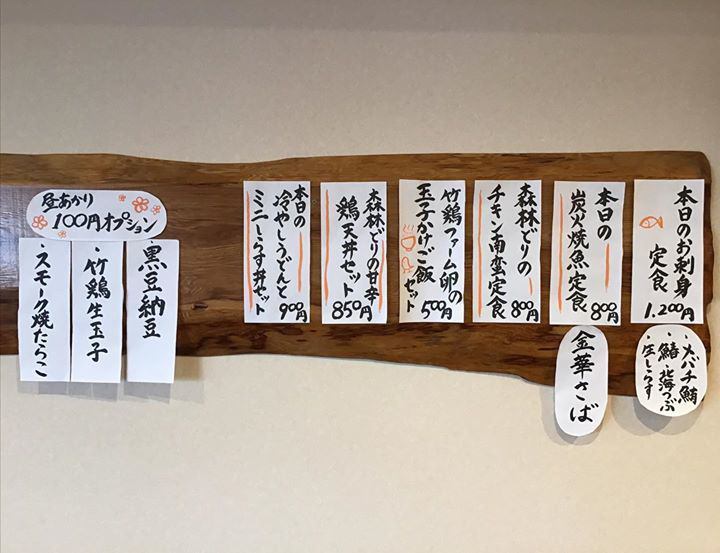 本日のお刺身
定食
1,200円
・メバチ鮪
・鰆・北海つぶ
・生しらす
本日の
炭火焼魚定食
800円
金華さば
森林どりの
チキン南蛮定食
800円
竹鶏ファーム卵の
玉子かけご飯
セット
500円
森林どりの甘辛
鶏天丼セット
850円
本日の
冷やしうどんと
ミニしらす丼セット
900円
昼あかり
100円オプション
・黒豆納豆
・竹鶏生玉子
・スモーク焼たらこ